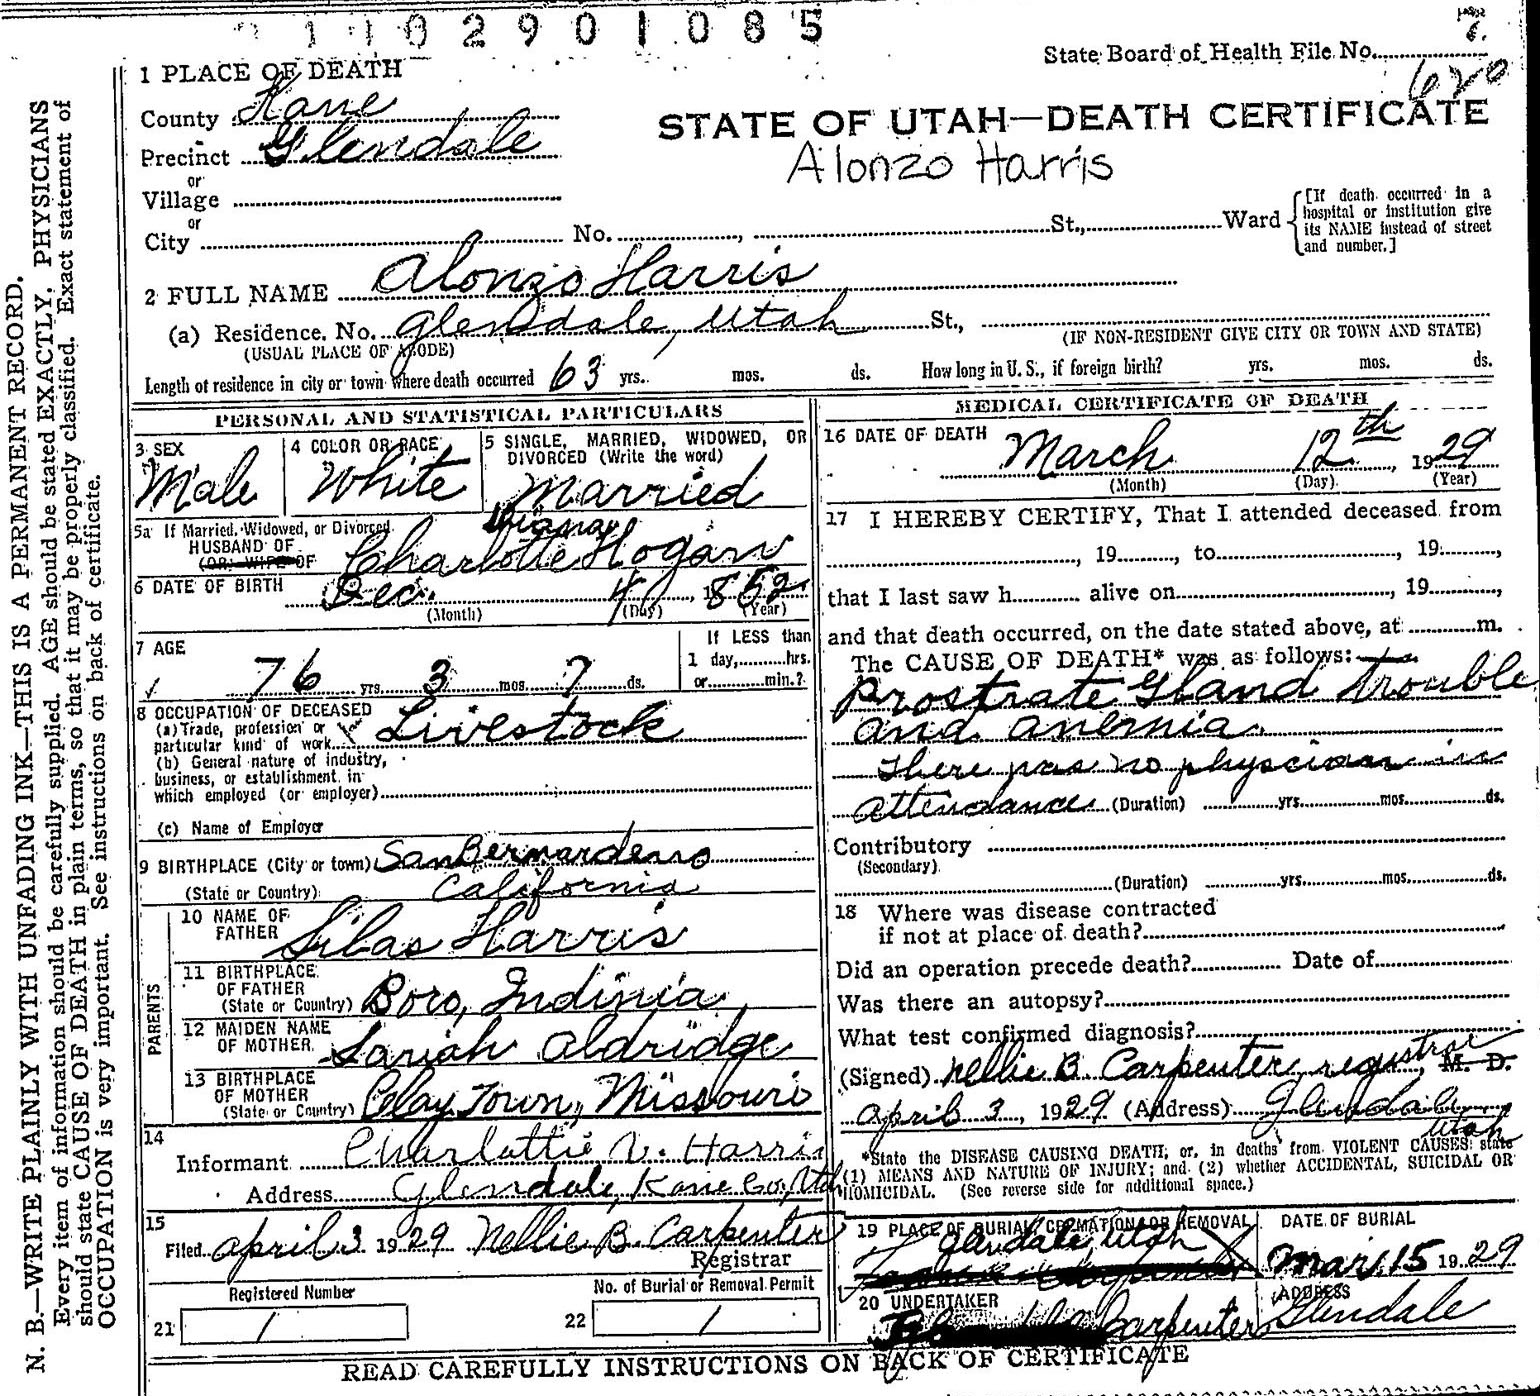 1 1 0 2 9 0 1 0 8 5
7
State Board of Health File No.
620
1 PLACE OF DEATH
County Kane
Precinct Glendale
or
Village
or
City No. , St., Ward
[If death occurred in a hospital or institution give its NAME instead of street and number.]
STATE OF UTAH—DEATH CERTIFICATE
Alonzo Harris
2 FULL NAME Alonzo Harris
(a) Residence, No. Glendale, Utah St.,
(USUAL PLACE OF ABODE) (IF NON-RESIDENT GIVE CITY OR TOWN AND STATE)
Length of residence in city or town where death occurred 63 yrs. mos. ds. How long in U. S., if foreign birth? yrs. mos. ds.
PERSONAL AND STATISTICAL PARTICULARS
3 SEX
Male
4 COLOR OR RACE
White
5 SINGLE, MARRIED, WIDOWED, OR
DIVORCED (Write the word)
Married
5a If Married, Widowed, or Divorced
HUSBAND OF
(OR) WIFE OF
Charlotte Hogan
6 DATE OF BIRTH
Dec. 4, 1852
(Month) (Day) (Year)
7 AGE
76 yrs. 3 mos. 7 ds.
If LESS than
1 day, hrs.
or min.?
8 OCCUPATION OF DECEASED
(a) Trade, profession or
particular kind of work
Livestock
(b) General nature of industry,
business, or establishment in
which employed (or employer)
(c) Name of Employer
9 BIRTHPLACE (City or town) San Bernardeno
(State or Country) California
PARENTS
10 NAME OF
FATHER
Silas Harris
11 BIRTHPLACE
OF FATHER
(State or Country) Boro, Indinia
12 MAIDEN NAME
OF MOTHER
Sariah Aldridge
13 BIRTHPLACE
OF MOTHER
(State or Country) Clay Town, Missouri
14
Informant Charlottie V. Harris
Address Glendale, Kane Co, Utah
15
Filed April 3 1929 Nellie B. Carpenter
Registrar
Registered Number
21 1
No. of Burial or Removal Permit
22 1
MEDICAL CERTIFICATE OF DEATH
16 DATE OF DEATH
March 12th, 1929
(Month) (Day) (Year)
17 I HEREBY CERTIFY, That I attended deceased from
, 19 , to , 19 ,
that I last saw h alive on , 19 ,
and that death occurred, on the date stated above, at m.
The CAUSE OF DEATH* was as follows:
Prostrate Gland trouble
and anemia.
There was no physician in
attendance (Duration) yrs. mos. ds.
Contributory
(Secondary)
(Duration) yrs. mos. ds.
18 Where was disease contracted
if not at place of death?
Did an operation precede death? Date of
Was there an autopsy?
What test confirmed diagnosis?
(Signed) Nellie B Carpenter, registrar, M. D.
April 3, 1929 (Address) Glendale,
Utah
*State the DISEASE CAUSING DEATH, or, in deaths from VIOLENT CAUSES, state
(1) MEANS AND NATURE OF INJURY; and (2) whether ACCIDENTAL, SUICIDAL OR
HOMICIDAL. (See reverse side for additional space.)
19 PLACE OF BURIAL, CREMATION OR REMOVAL
Glendale, Utah
DATE OF BURIAL
Mar. 15 1929
20 UNDERTAKER
Carpenter
ADDRESS
Glendale
READ CAREFULLY INSTRUCTIONS ON BACK OF CERTIFICATE
N. B.—WRITE PLAINLY WITH UNFADING INK—THIS IS A PERMANENT RECORD.
Every item of information should be carefully supplied. AGE should be stated EXACTLY. PHYSICIANS
should state CAUSE OF DEATH in plain terms, so that it may be properly classified. Exact statement of
OCCUPATION is very important. See instructions on back of certificate.